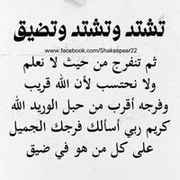 تشتد وتشتد وتضيق
www.facebook.com/Shakespear22
ثم تنفرج من حيث لا نعلم
ولا نحتسب لأن الله قريب
وفرجه أقرب من حبل الوريد الله
كريم ربي أسألك فرجك الجميل
على كل من هو في ضيق